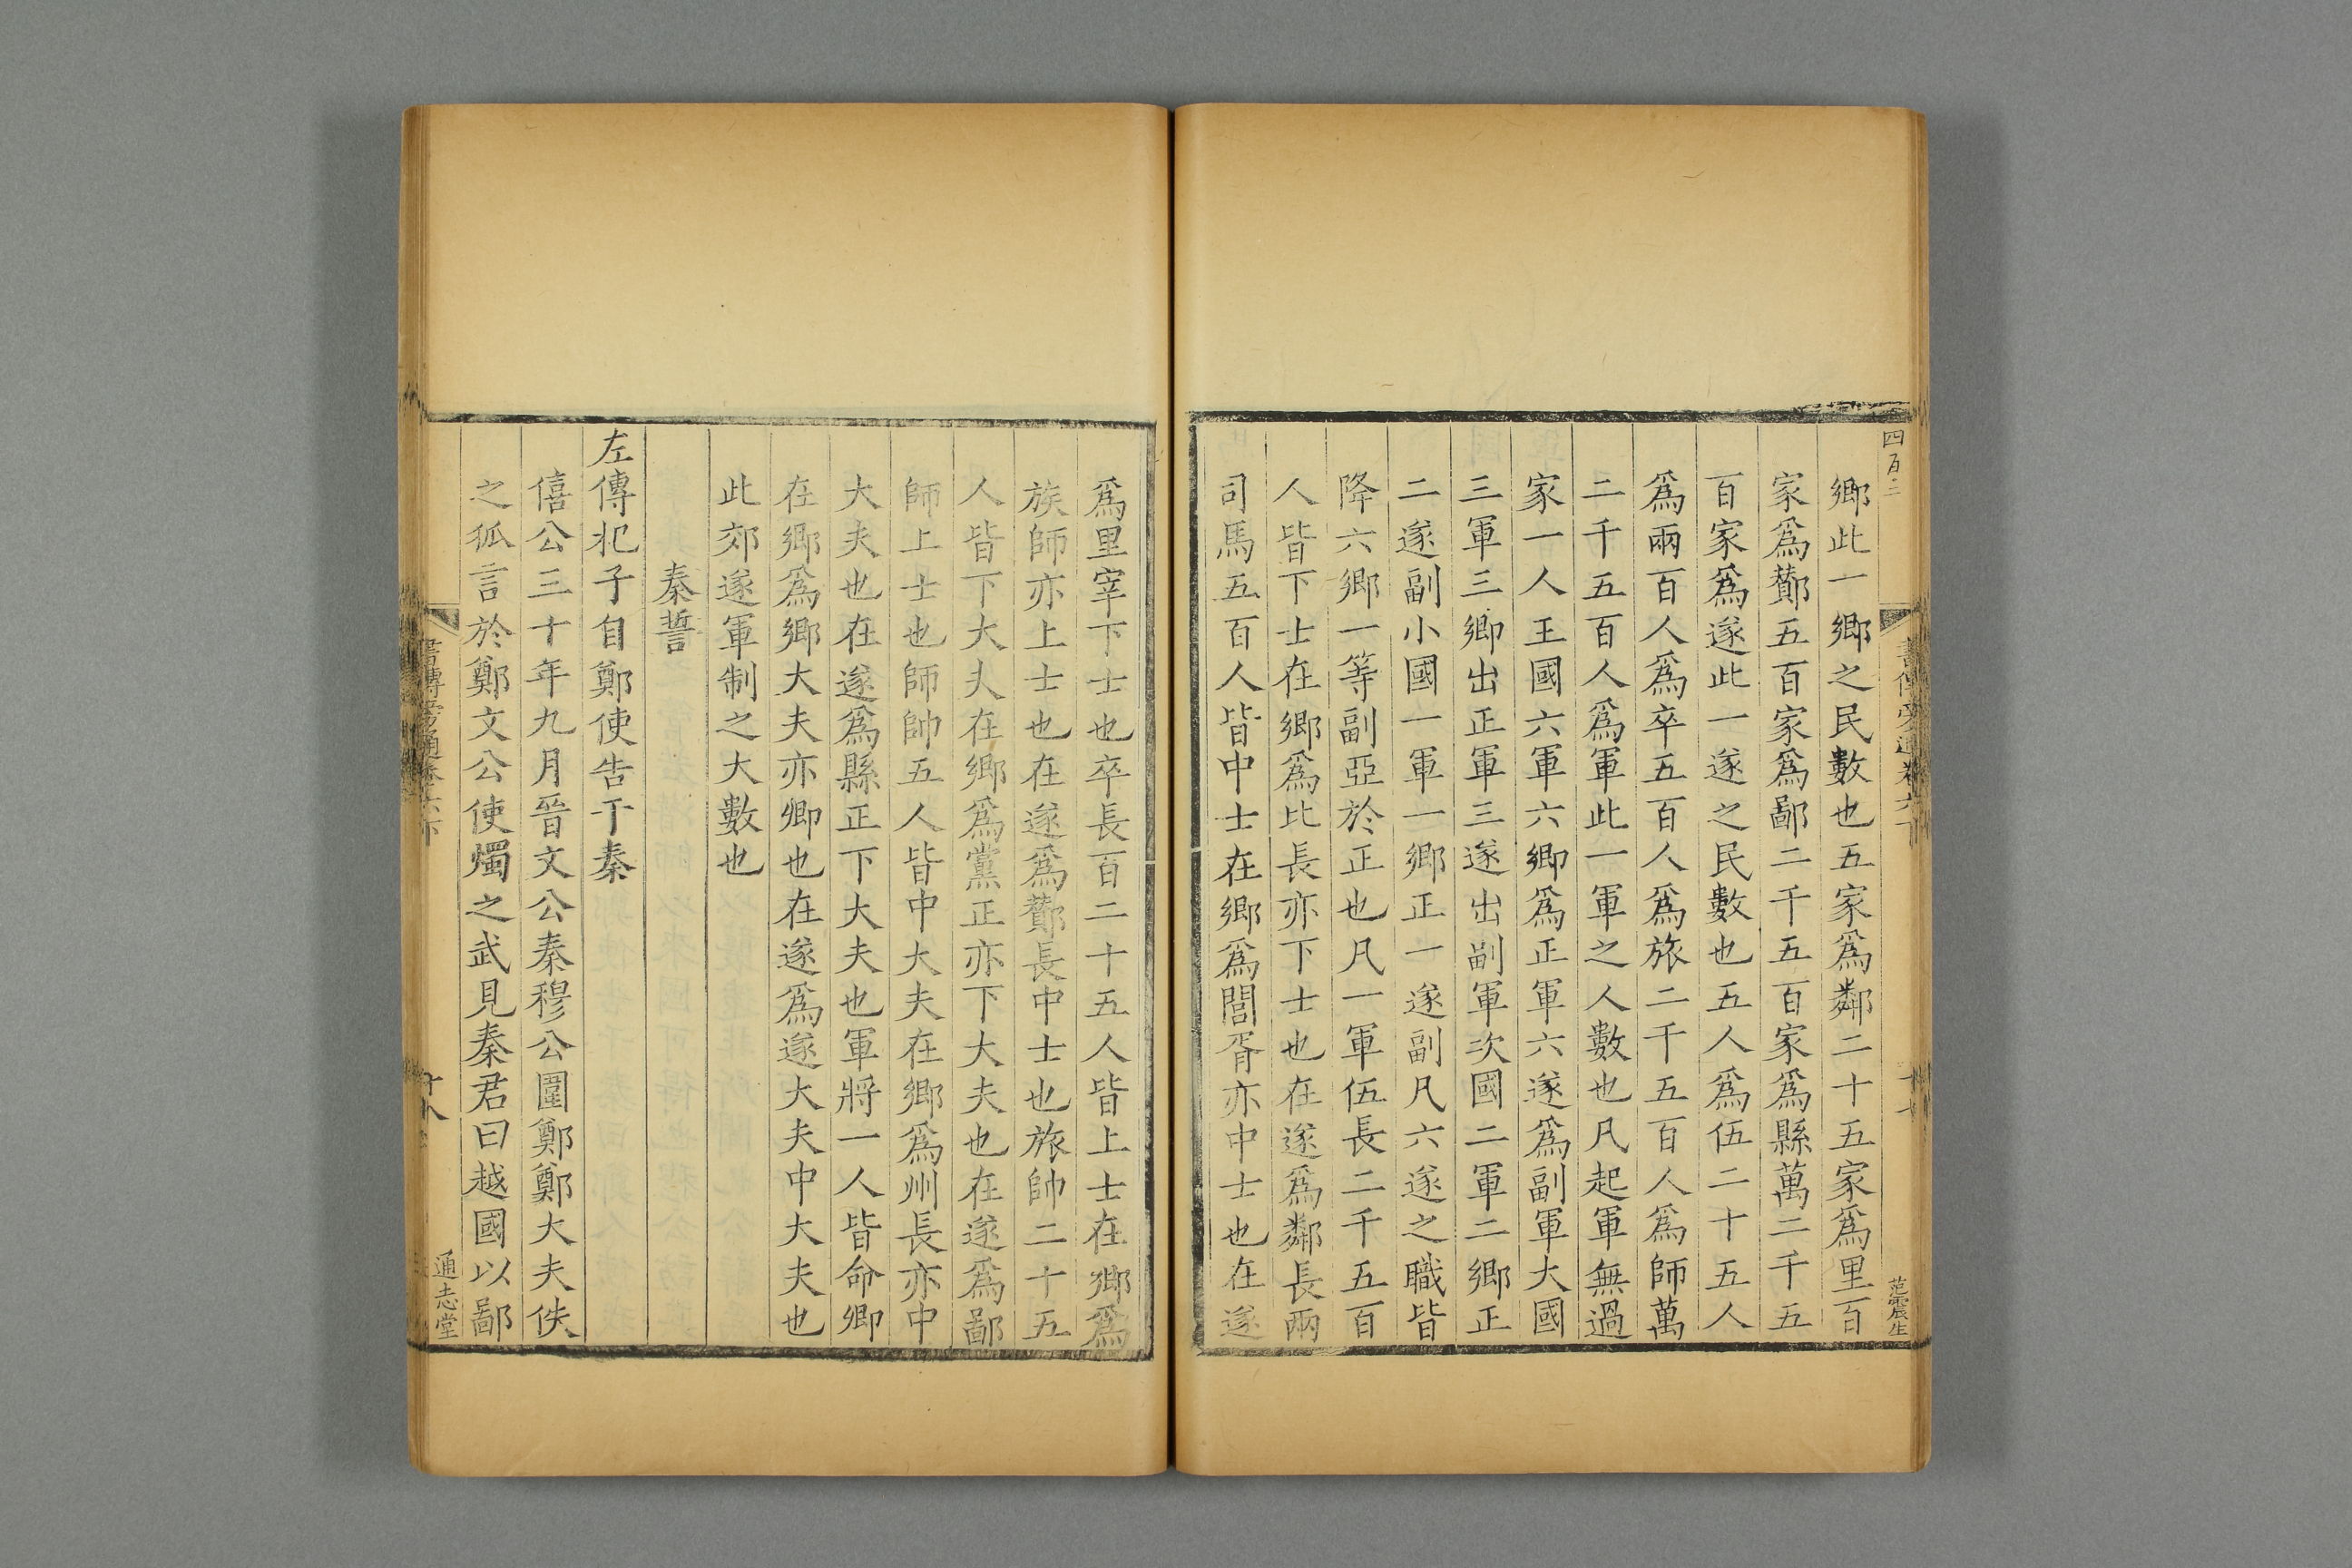 四百二
書傳旁通卷六下
范震生
鄉此一鄉之民數也五家爲鄰二十五家爲里百
家爲酇五百家爲鄙二千五百家爲縣萬二千五
百家爲遂此一遂之民數也五人爲伍二十五人
爲兩百人爲卒五百人爲旅二千五百人爲師萬
二千五百人爲軍此一軍之人數也凡起軍無過
家一人王國六軍六鄉爲正軍六遂爲副軍大國
三軍三鄉出正軍三遂出副軍次國二軍二鄉正
二遂副小國一軍一鄉正一遂副凡六遂之職皆
降六鄉一等副亞於正也凡一軍伍長二千五百
人皆下士在鄉爲比長亦下士也在遂爲鄰長兩
司馬五百人皆中士在鄉爲閭胥亦中士也在遂
爲里宰下士也卒長百二十五人皆上士在鄉爲
族師亦上士也在遂爲酇長中士也旅帥二十五
人皆下大夫在鄉爲黨正亦下大夫也在遂爲鄙
師上士也師帥五人皆中大夫在鄉爲州長亦中
大夫也在遂爲縣正下大夫也軍將一人皆命卿
在鄉爲鄉大夫亦卿也在遂爲遂大夫中大夫也
此郊遂軍制之大數也
秦誓
左傳杞子自鄭使告于秦
僖公三十年九月晉文公秦穆公圍鄭鄭大夫佚
之狐言於鄭文公使燭之武見秦君曰越國以鄙
書傳旁通卷六下
十八
通志堂